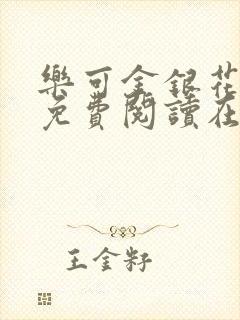 樂可金銀花
免費閱讀在
王金籽